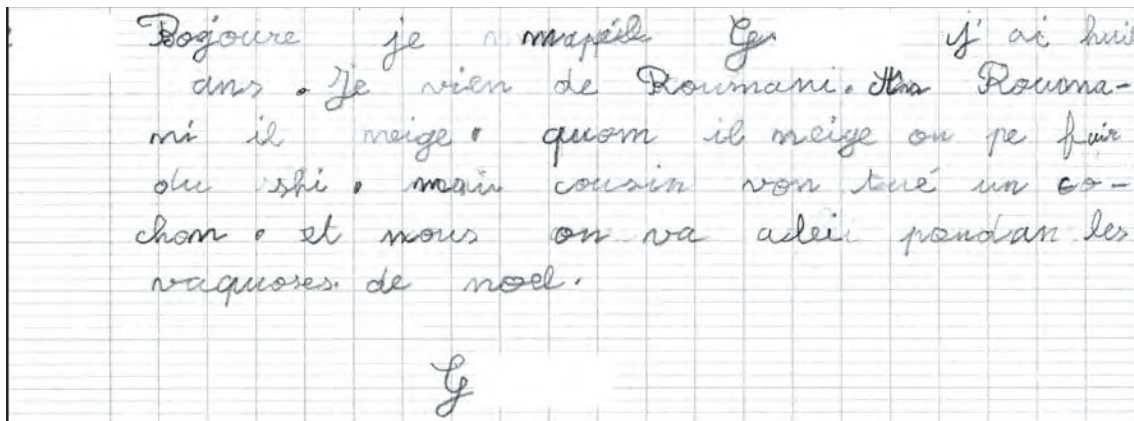 Bogoure je mappéle G j'ai huit
ans. Je vien de Roumani. An Rouma-
ni il neige. quom il neige on pe fair
du shi. mais cousin von tué un co-
chon. et nous on va adei pendan les
vaquoses de noel.
G